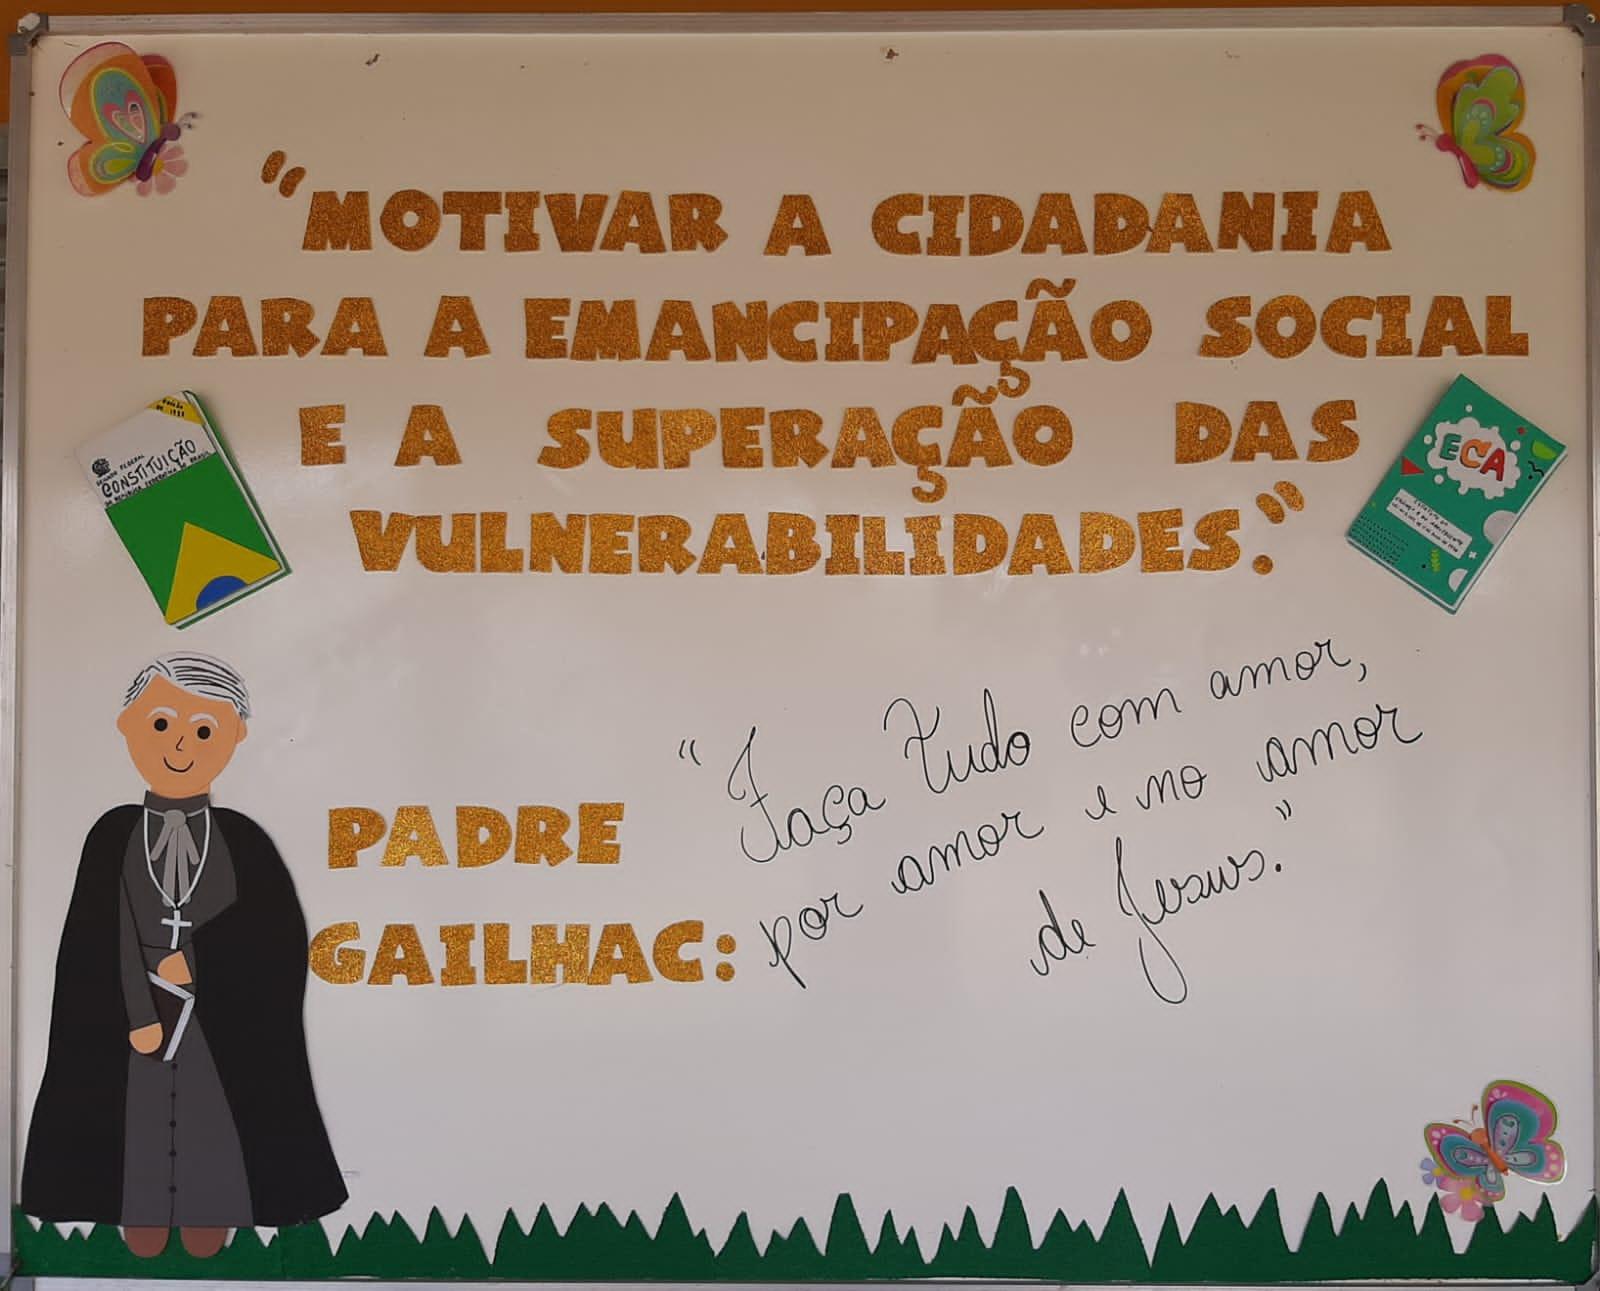 “MOTIVAR A CIDADANIA
PARA A EMANCIPAÇÃO SOCIAL
E A SUPERAÇÃO DAS
VULNERABILIDADES.”
SENADO FEDERAL
CONSTITUIÇÃO
DA REPÚBLICA FEDERATIVA DO BRASIL
ECA
PADRE
GAILHAC:
“Faça tudo com amor,
por amor e no amor
de Jesus.”